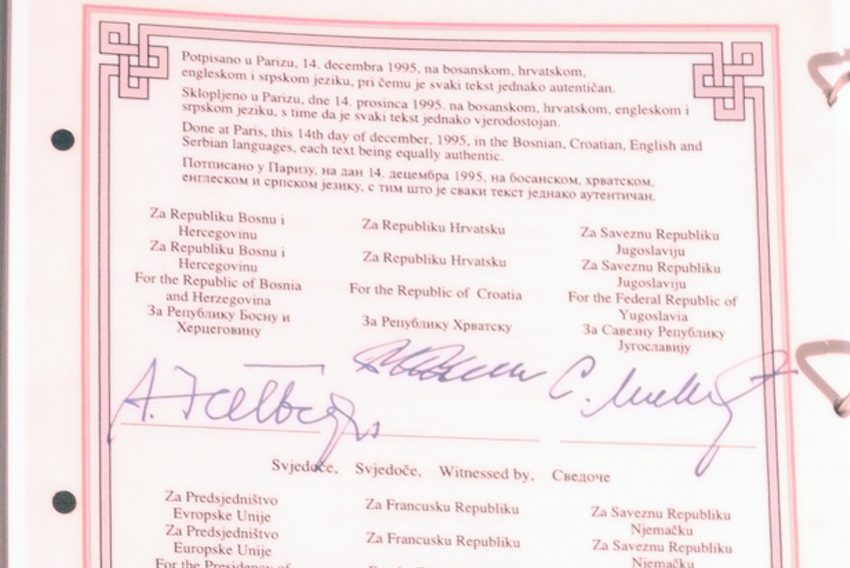 Potpisano u Parizu, 14. decembra 1995, na bosanskom, hrvatskom,
engleskom i srpskom jeziku, pri čemu je svaki tekst jednako autentičan.
Sklopljeno u Parizu, dne 14. prosinca 1995. na bosanskom, hrvatskom, engleskom i
srpskom jeziku, s time da je svaki tekst jednako vjerodostojan.
Done at Paris, this 14th day of december, 1995, in the Bosnian, Croatian, English and
Serbian languages, each text being equally authentic.
Потписано у Паризу, на дан 14. децембра 1995, на босанском, хрватском,
енглеском и српском језику, с тим што је сваки текст једнако аутентичан.
Za Republiku Bosnu i
Hercegovinu
Za Republiku Bosnu i
Hercegovinu
For the Republic of Bosnia
and Herzegovina
За Републику Босну и
Херцеговину
Za Republiku Hrvatsku
Za Republiku Hrvatsku
For the Republic of Croatia
За Републику Хрватску
Za Saveznu Republiku
Jugoslaviju
Za Saveznu Republiku
Jugoslaviju
For the Federal Republic of
Yugoslavia
За Савезну Републику
Југославију
Svjedoče, Svjedoče, Witnessed by, Сведоче
Za Predsjedništvo
Evropske Unije
Za Predsjedništvo
Europske Unije
For the Presidency of
Za Francusku Republiku
Za Francusku Republiku
Za Saveznu Republiku
Njemačku
Za Saveznu Republiku
Njemačku